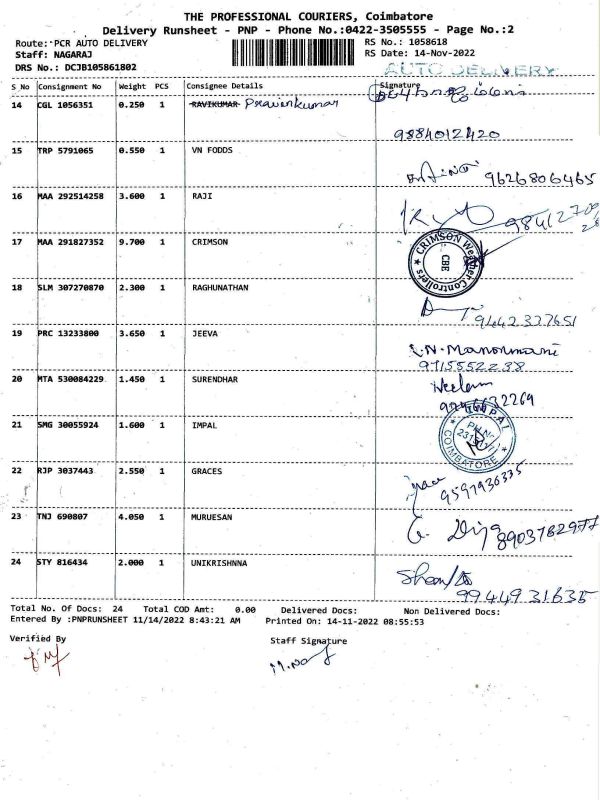 THE PROFESSIONAL COURIERS, Coimbatore
Delivery Runsheet - PNP - Phone No.:0422-3505555 - Page No.:2
Route: PCR AUTO DELIVERY RS No.: 1058618
Staff: NAGARAJ RS Date: 14-Nov-2022
DRS No.: DCJB105861802 AUTO DELIVERY
S No Consignment No Weight PCS Consignee Details Signature
14 CGL 1056351 0.250 1 RAVIKUMAR Pravenkumar
9884012420
15 TRP 5791065 0.550 1 VN FODDS
9626806465
16 MAA 292514258 3.600 1 RAJI
17 MAA 291827352 9.700 1 CRIMSON
CRIMSON Weather Controllers
CBE
18 SLM 307270870 2.300 1 RAGHUNATHAN
9442337651
19 PRC 13233800 3.650 1 JEEVA
9715552238
20 MTA 530084229 1.450 1 SURENDHAR
21 SMG 30055924 1.600 1 IMPAL
IMPAL
COIMBATORE
22 RJP 3037443 2.550 1 GRACES
9597936335
23 TNJ 690807 4.050 1 MURUESAN
8903782977
24 STY 816434 2.000 1 UNIKRISHNNA
9944931635
Total No. Of Docs: 24 Total COD Amt: 0.00 Delivered Docs: Non Delivered Docs:
Entered By :PNPRUNSHEET 11/14/2022 8:43:21 AM Printed On: 14-11-2022 08:55:53
Verified By Staff Signature